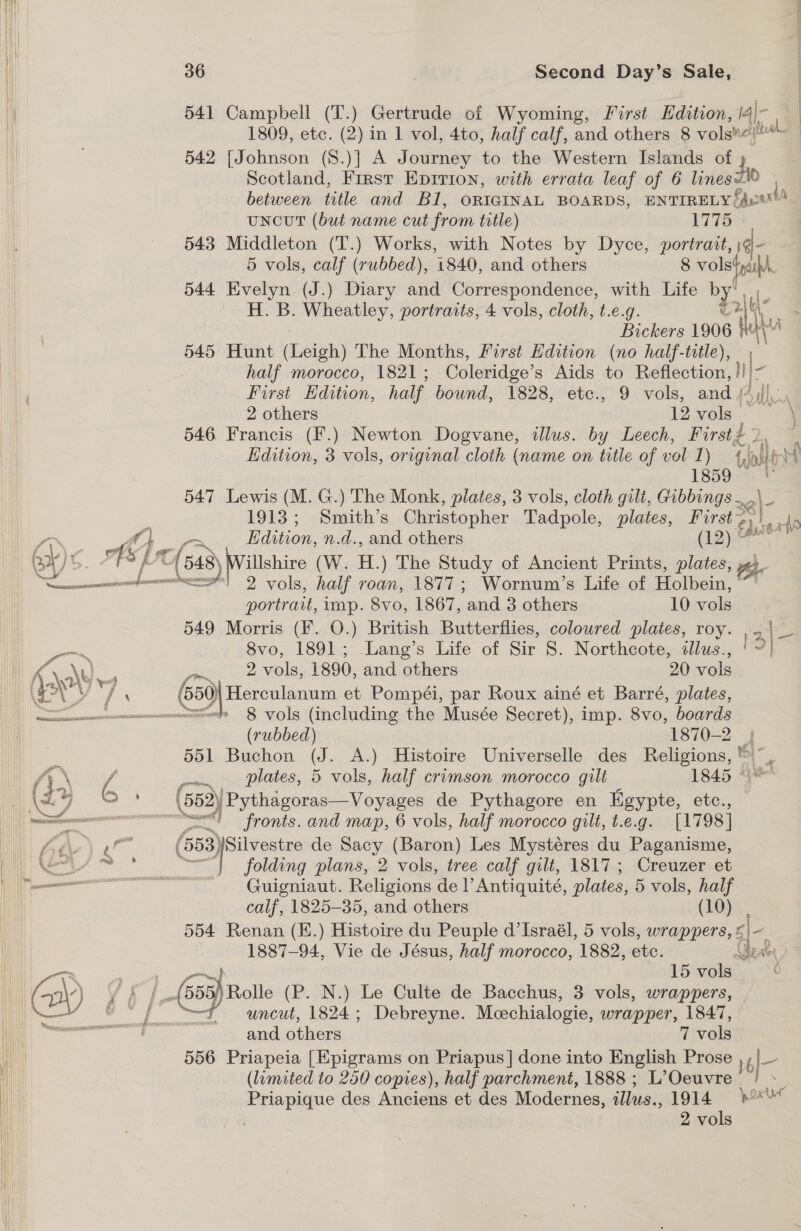 36 Second Day's Sale,
541 Campbell (T.) Gertrude of Wyoming, First Edition, 14/-
1809, etc. (2) in 1 vol, 4to, half calf, and others 8 vols
542 [Johnson (S.)] A Journey to the Western Islands of
Scotland, First Edition, with errata leaf of 6 lines £10
between title and B1, ORIGINAL BOARDS, ENTIRELY
UNCUT (but name cut from title) 1775
543 Middleton (T.) Works, with Notes by Dyce, portrait,
5 vols, calf (rubbed), 1840, and others 8 vols
544 Evelyn (J.) Diary and Correspondence, with Life by
H. B. Wheatley, portraits, 4 vols, cloth, t.e.g.
Bickers 1906
545 Hunt (Leigh) The Months, First Edition (no half-title),
half morocco, 1821; Coleridge's Aids to Reflection,
First Edition, half bound, 1828, etc., 9 vols, and
2 others 12 vols
546 Francis (F.) Newton Dogvane, illus. by Leech, First
Edition, 3 vols, original cloth (name on title of vol I)
1859
547 Lewis (M. G.) The Monk, plates, 3 vols, cloth gilt, Gibbings
1913; Smith's Christopher Tadpole, plates, First
Edition, n.d., and others (12)
548 Willshire (W. H.) The Study of Ancient Prints, plates,
2 vols, half roan, 1877; Wornum's Life of Holbein,
portrait, imp. 8vo, 1867, and 3 others 10 vols
549 Morris (F. O.) British Butterflies, coloured plates, roy.
8vo, 1891; Lang's Life of Sir S. Northcote, illus.,
2 vols, 1890, and others 20 vols
550 Herculanum et Pompéi, par Roux ainé et Barré, plates,
8 vols (including the Musée Secret), imp. 8vo, boards
(rubbed) 1870-2
551 Buchon (J. A.) Histoire Universelle des Religions,
plates, 5 vols, half crimson morocco gilt 1845
552 Pythagoras—Voyages de Pythagore en Egypte, etc.,
fronts. and map, 6 vols, half morocco gilt, t.e.g. [1798]
553 Silvestre de Sacy (Baron) Les Mystéres du Paganisme,
folding plans, 2 vols, tree calf gilt, 1817; Creuzer et
Guigniaut. Religions de l'Antiquité, plates, 5 vols, half
calf, 1825-35, and others (10)
554 Renan (E.) Histoire du Peuple d'Israël, 5 vols, wrappers,
1887-94, Vie de Jésus, half morocco, 1882, etc.
15 vols
555 Rolle (P. N.) Le Culte de Bacchus, 3 vols, wrappers,
uncut, 1824; Debreyne. Mœchialogie, wrapper, 1847,
and others 7 vols
556 Priapeia [Epigrams on Priapus] done into English Prose
(limited to 250 copies), half parchment, 1888; L'Oeuvre
Priapique des Anciens et des Modernes, illus., 1914
2 vols